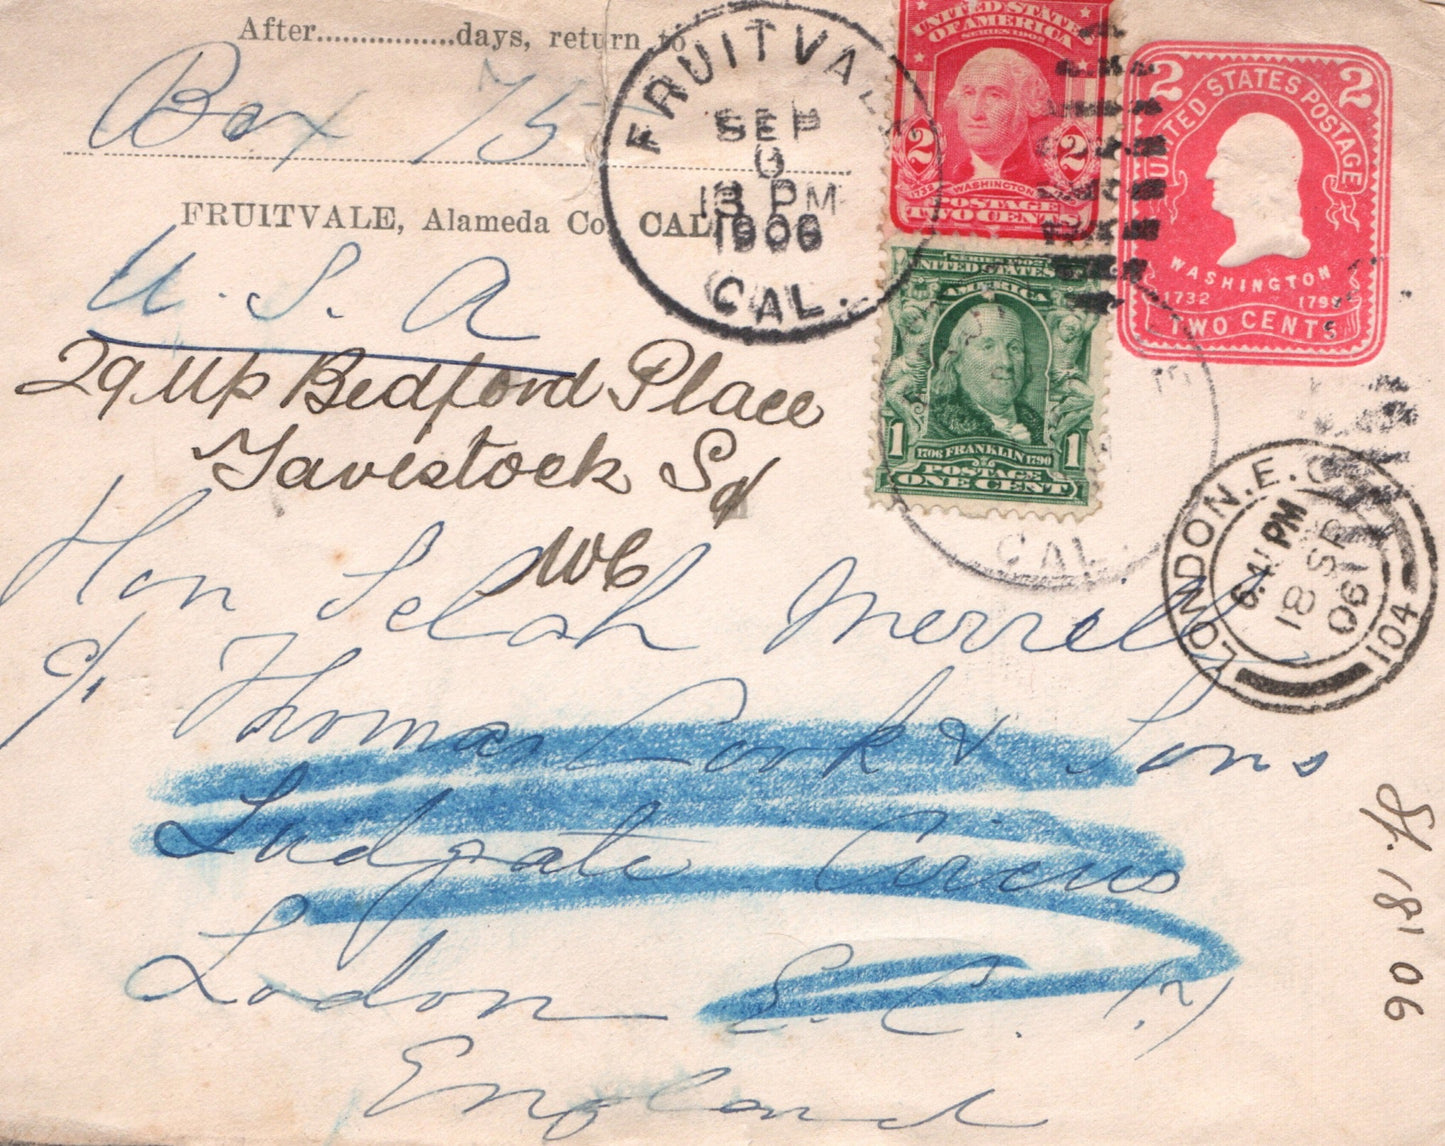 After................days, return to
Box 75
FRUITVALE, Alameda Co. CAL.
U. S. A
FRUITVALE
SEP
6
PM
1906
CAL.
UNITED STATES
OF AMERICA
SERIES 1902
2 2
1732 WASHINGTON
POSTAGE
TWO CENTS
2 2
UNITED STATES POSTAGE
WASHINGTON
1732 1799
TWO CENTS
SERIES 1902
UNITED STATES
AMERICA
1 1
1706 FRANKLIN 1790
POSTAGE
ONE CENT
CAL.
29 Up Bedford Place
Tavistock Sq
WC
Hon Selah Merrell
c/. Thomas Cook & Sons
Ludgate Circus
London E. C. (?)
England
LONDON. E. C
6.45 PM
18 SP
06
104
18 1 06